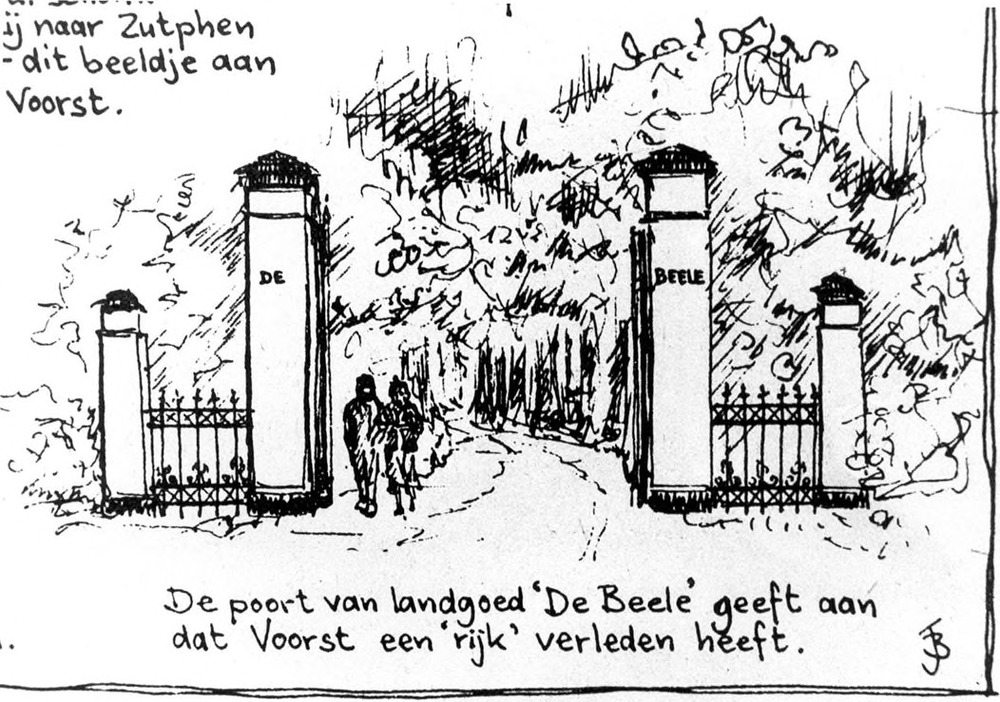 ij naar Zutphen
- dit beeldje aan
Voorst.
DE
BEELE
De poort van landgoed 'De Beele' geeft aan
dat Voorst een 'rijk' verleden heeft.